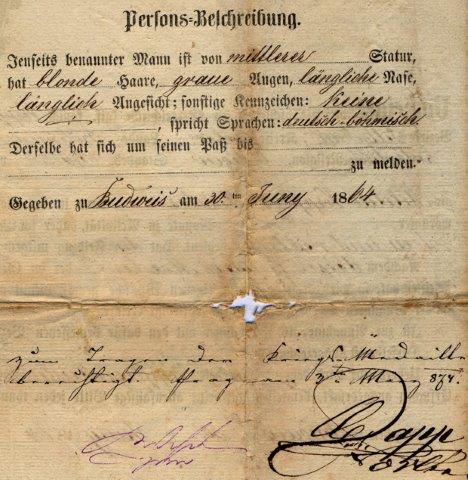 Persons-Beschreibung.
Jenseits benannter Mann ist von mittlerer Statur,
hat blonde Haare, graue Augen, längliche Nase,
länglich Angesicht; sonstige Kennzeichen: keine
, spricht Sprachen: deutsch-böhmisch
Derselbe hat sich um seinen Paß bis
zu melden.
Gegeben zu Budweis am 30ten Juny 1864
zum Tragen der Kriegs-Medaille
berechtigt Prag am 3ten März 874.